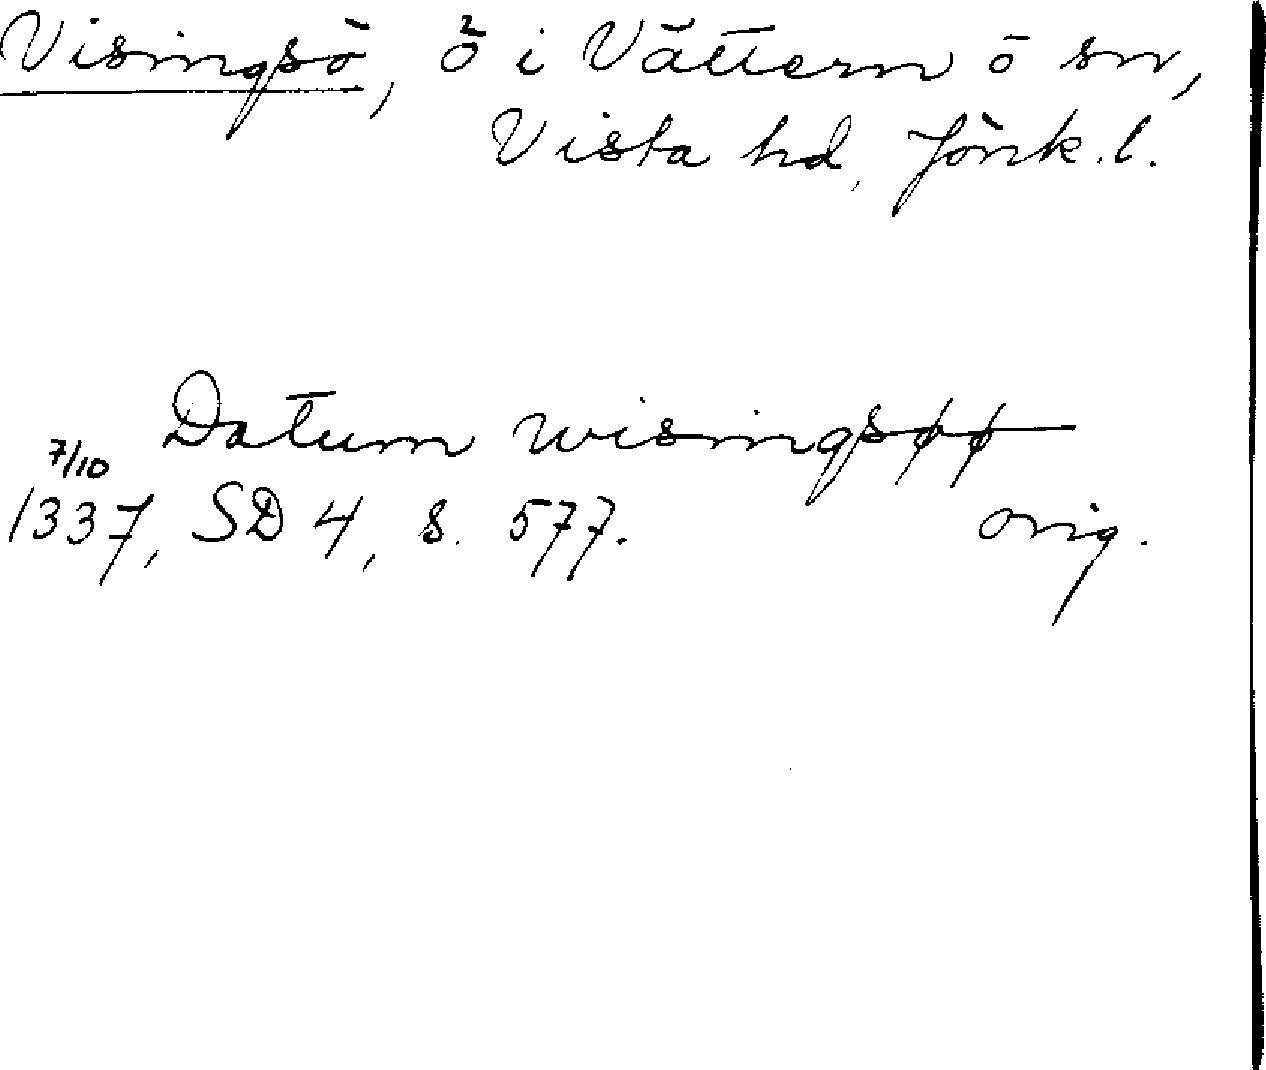 Visingsö, ö i Vättern o sn,
Vista hd, Jönk. l.
Datum wisingsøø
7/10
1337, SD 4, s. 577. orig.